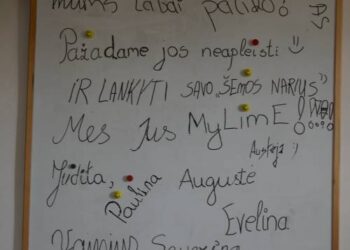 mums labai patiko! AŠ
Pažadame jos neapleisti
IR LANKYTI SAVO „ŠEMOS NARIUS"
Mes Jus MyLimE!
Austėja :)
Judita, Paulina Auguste
Evelina